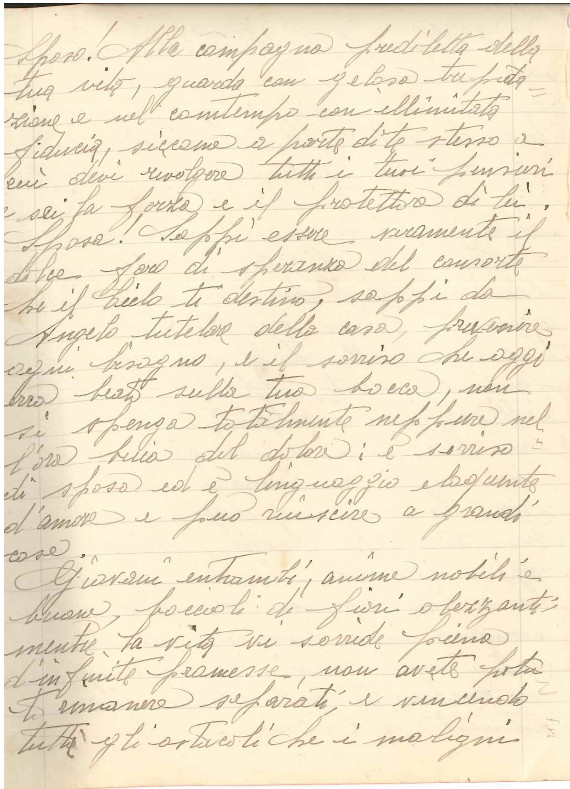 Sposo! Alla compagna prediletta della
tua vita, guarda con gelosa trepida=
zione e nel contempo con illimitata
fiducia, siccome a parte di te stesso a
cui devi rivolgere tutti i tuoi pensieri
e sei la forza e il protettore di lei.
Sposa! Sappi essere veramente il
dolce faro di speranza del consorte
che il Cielo ti destinò, sappi da
Angelo tutelare della casa, prevenire
ogni bisogno, e il sorriso che oggi
erra beato sulla tua bocca, non
si spenga totalmente neppure nel=
l'ora buia del dolore; è sorriso
di sposa ed è linguaggio eloquente
d'amore e può riuscire a grandi
cose.
Giovani entrambi, anime nobili e
buone, boccioli di fiori olezzanti
mentre la vita vi sorride piena
d'infinite promesse, non avete potu
to rimanere separati, e vincendo
tutti gli ostacoli che i maligni